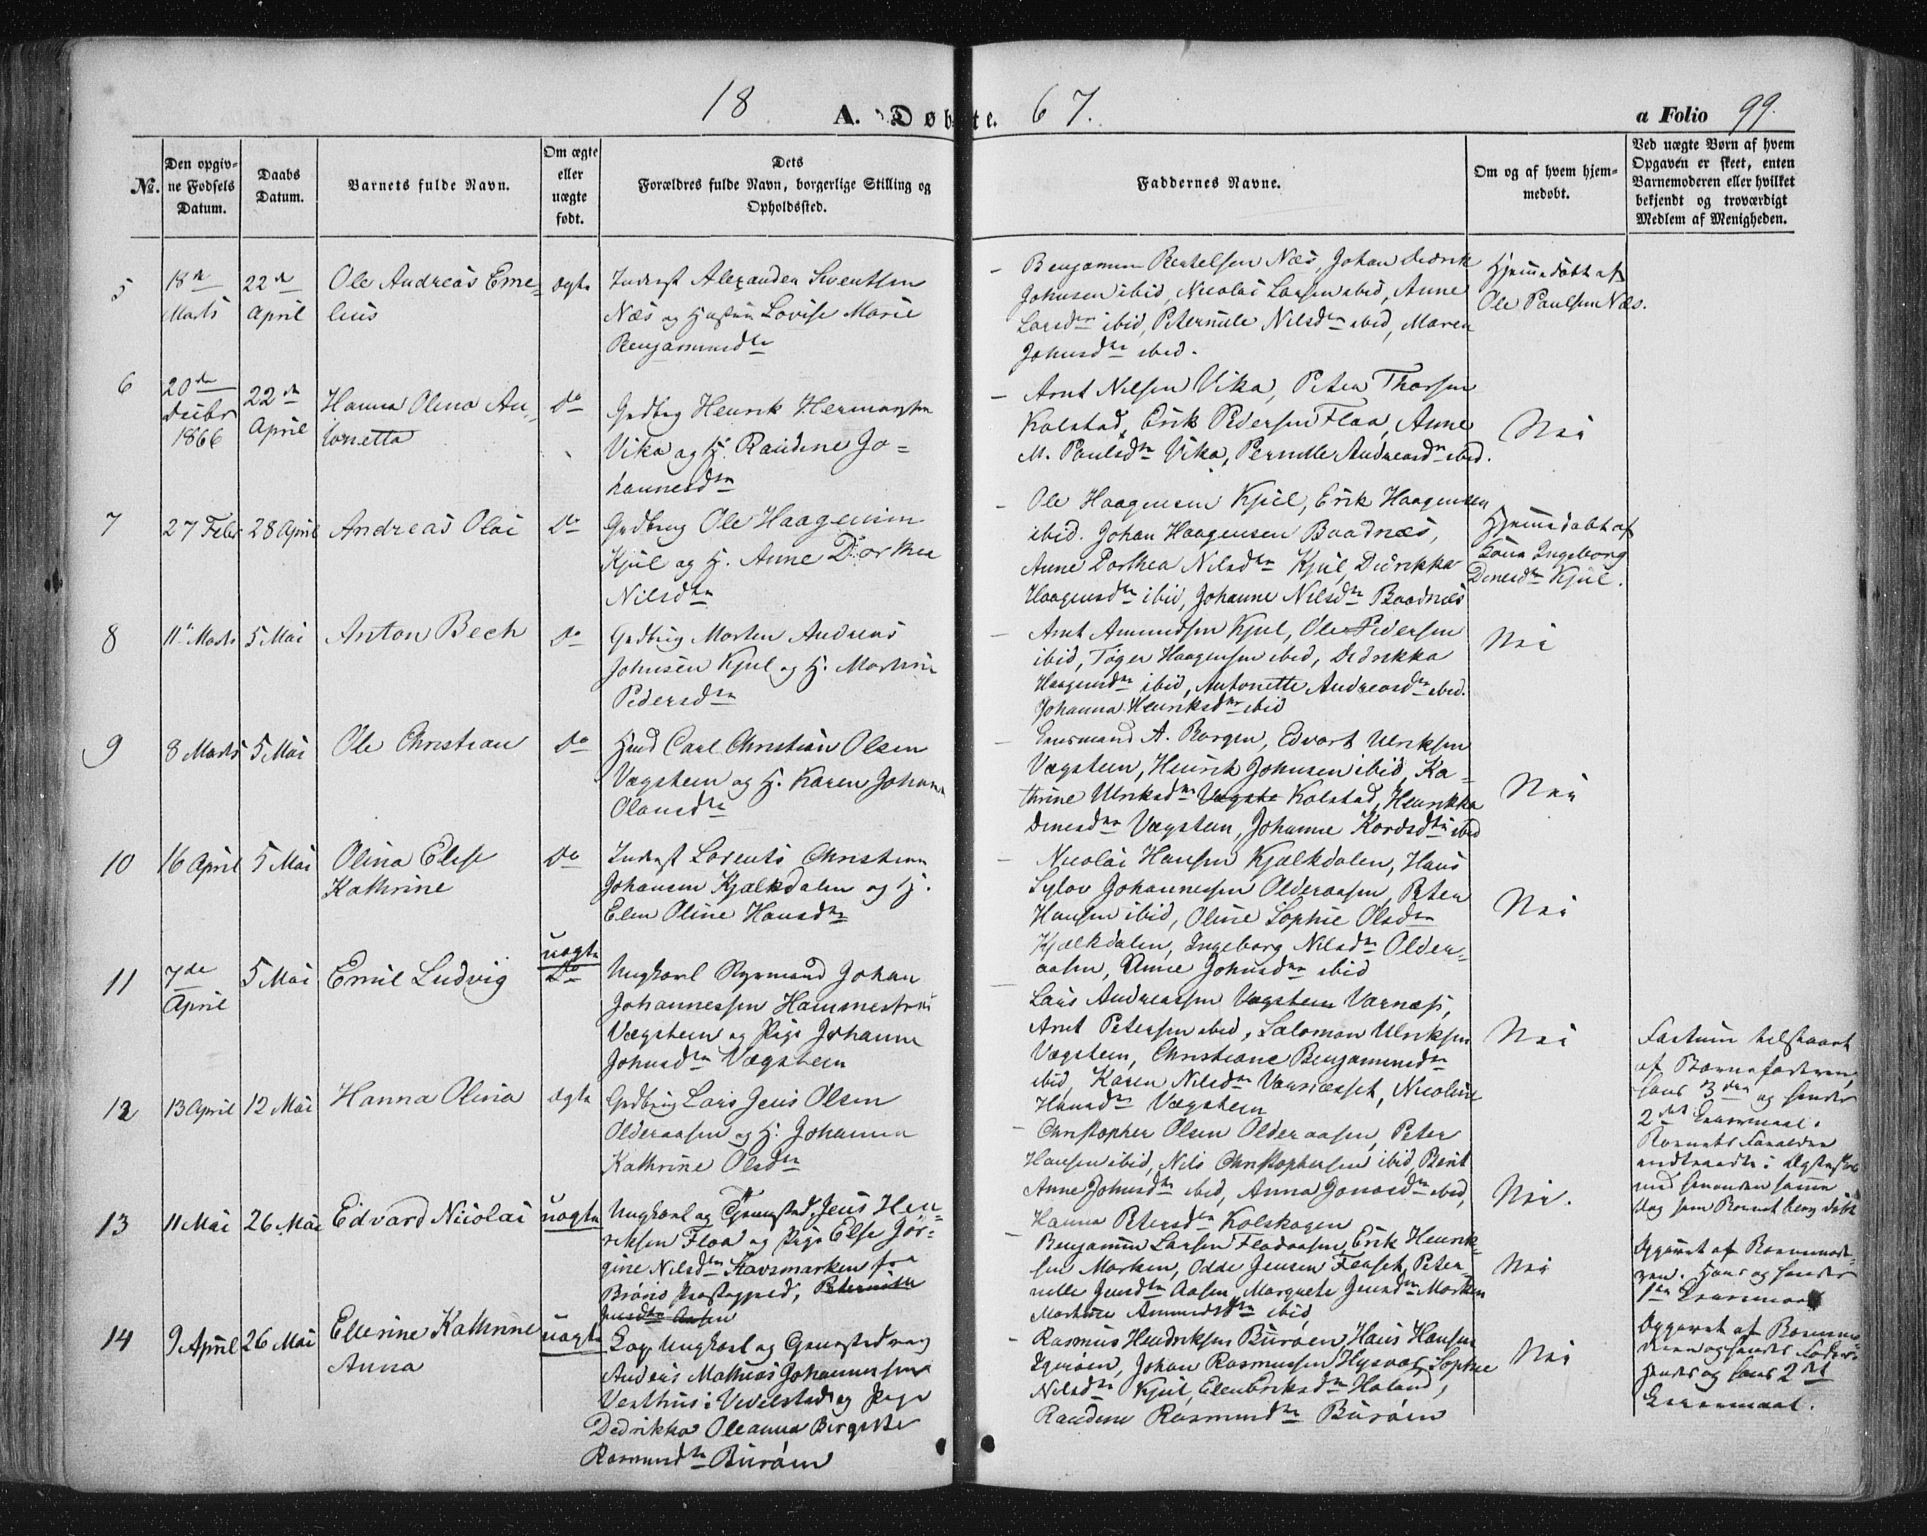 18 A. Døbte. 67. a Folio 99.
No.
Den opgivne Fødsels Datum.
Daabs Datum.
Barnets fulde Navn.
Om ægte eller uægte født.
Dets Forældres fulde Navn, borgerlige Stilling og Opholdssted.
Faddernes Navne.
Om og af hvem hjemmedøbt.
Ved uægte Børn af hvem Opgaven er skeet, enten Barnemoderen eller hvilket bekjendt og troværdigt Medlem af Menigheden.
5
18de Marts
22de April
Ole Andreas Eme-
lius
ægte
Inderst Alexander Sventsen
Næs og Hustru Lovise Marie
Benjaminsdtr
Benjamin Bertelsen Næs, Johan Didrik
Johnsen ibid, Nicolai Larsen ibid, Anne
Larsdtr ibid, Peternille Nilsdtr ibid, Maren
Johnsdtr ibid.
Hjemmedøbt af
Ole Paulsen Næs.
6
20de Decbr 1866
22de April
Hanna Olina An-
tonetta
Do
Grdbrg Henrik Hermansen
Vika og H. Raudine Jo-
hannesdtr
Arnt Nilsen Vika, Peter Thorsen
Kolstad, Erik Pedersen Floa, Anne
M. Paulsdtr Vika, Pernille Andreasdtr ibid.
Nei
7
27 Febr
28 April
Andreas Olai
Do
Grdbrug Ole Haagensen
Kjul og H. Anne Dorthea
Nilsdtr
Ole Haagensen Kjul, Erik Haagensen
ibid. Johan Haagensen Baadnæs,
Anne Dorthea Nilsdtr Kjul, Didrikke
Haagensdtr ibid, Johanne Nilsdtr Baadnæs
Hjemmedøbt af
Ingeborg
Kjul.
8
11te Marts
5 Mai
Anton Bech
Do
Grdbrug Morten Andreas
Johnsen Kjul og H. Martine
Pedersdtr
Arnt Amundsen Kjul, Ole Pedersen
ibid, Tøger Haagensen ibid, Didrikka
Haagensdtr ibid, Antonette Andreasdtr ibid.
Johanna Henriksdtr ibid
Nei
9
8 Marts
5 Mai
Ole Christian
Do
Hmd Carl Christian Olsen
Vægstein og H. Karen Johanna
Olausdtr
Ensomand A. Borgen, Edvart Ulriksen
Vægstein, Henrik Johnsen ibid, Ka-
thrine Ulriksdtr Vægste Kolstad, Henrikka
Dinesdtr Vægstein, Johanne Kordsdtr ibid
Nei
10
16 April
5 Mai
Olina Elise
Kathrine
Do
Inderst Lorents Christian
Johansen Kjælkdalen og H.
Elen Oline Hansdtr
Nicolai Hansen Kjælkdalen, Hans
Sylov Johannessen Olderaasen, Peter
Hansen ibid, Oline Sophie Olsdtr
Kjælkdalen, Ingeborg Nilsdtr Older-
aasen, Anne Johnsdtr ibid
Nei
11
7de April
5 Mai
Emil Ludvig
uægte
Do
Ungkarl Johan
Johannessen
Vægstein og Pige Johanne
Johnsdtr Vægstein
Lars Andreassen Vægstein Varnæs,
Arnt Petersen ibid, Salomon Ulriksen
Vægstein, Christiane Benjaminsdtr
ibid, Karen Nilsdtr Varnæsset, Nicoline
Hansdtr Vægstein
Nei
Factum tilstaaet
af Barnefaderen,
hans 3die og hendes
2det Leiermaal.
Barnets Forældre
indtraadte i Ægteskab
med hinanden samme
dag som Barnet blev døbt
12
13 April
12 Mai
Hanna Olina
ægte
Grdbrug Lars Jens Olsen
Olderaasen og H. Johanna
Kathrine Olsdtr
Christopher Olsen Olderaasen, Peter
Hansen ibid, Nils Christophersen ibid, Berit
Anne Johnsdtr ibid, Anna Jonasdtr ibid,
Hanna Petersdtr Kolskogen
Nei.
13
11 Mai
26 Mai
Edvard Nicolai
uægte
Ungkarl og Gaardsted, Jens Hen-
riksen Floa og Pige Else Jør-
gine Nilsdtr Kavsmarken fra
Brønø Præstegjeld, Peternille
Jensdtr Aasen
Benjamin Larsen Flodaasen, Erik Henrik-
sen Marken, Odde Jensen Flaset, Peter-
nille Jensdtr Aasen, Margrete Jensdtr Marken
Martine Amundsdtr ibid
Nei
Opgivet af Barnemod-
eren. Hans og hendes
1ste Leiermaal
14
9 April
26 Mai
Ellerine Kathrine
Anna
uægte
Ungkarl og
Anders Mathias Johannessen
Vesthus i Vevelstad og Pige
Didrikka Oleanna Birgitte
Rasmusdtr Burøen
Rasmus Hendriksen Burøen, Hans Hansen
Johan Rasmussen Hysvær, Sophie
Nilsdtr Kjul, Elen Eriksdtr Haland,
Raudine Rasmusdtr Burøen
Nei
Opgivet af Barnemo-
deren
hendes og hans 2det
Leiermaal.